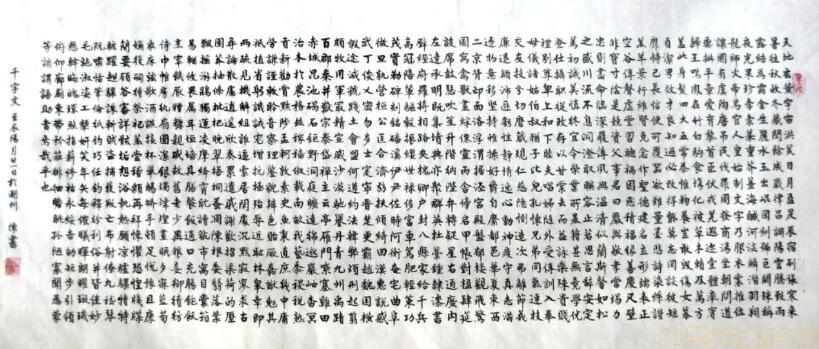 天地玄黃宇宙洪荒日月盈昃辰宿列張寒來
暑往秋收冬藏閏餘成歲律呂調陽雲騰致雨
露結為霜金生麗水玉出崑岡劍號巨闕珠稱
夜光果珍李柰菜重芥薑海鹹河淡鱗潛羽翔
龍師火帝鳥官人皇始制文字乃服衣裳推位
讓國有虞陶唐弔民伐罪周發殷湯坐朝問道
垂拱平章愛育黎首臣伏戎羌遐邇壹體率賓
歸王鳴鳳在竹白駒食場化被草木賴及萬方
蓋此身髮四大五常恭惟鞠養豈敢毀傷女慕
貞潔男效才良知過必改得能莫忘罔談彼短
靡恃己長信使可覆器欲難量墨悲絲染詩讚
羔羊景行維賢克念作聖德建名立形端表正
空谷傳聲虛堂習聽禍因惡積福緣善慶尺璧
非寶寸陰是競資父事君曰嚴與敬孝當竭力
忠則盡命臨深履薄夙興溫凊似蘭斯馨如松
之盛川流不息淵澄取映容止若思言辭安定
篤初誠美慎終宜令榮業所基籍甚無竟學優
登仕攝職從政存以甘棠去而益詠樂殊貴賤
禮別尊卑上和下睦夫唱婦隨外受傅訓入奉
母儀諸姑伯叔猶子比兒孔懷兄弟同氣連枝
交友投分切磨箴規仁慈隱惻造次弗離節義
廉退顛沛匪虧性靜情逸心動神疲守真志滿
逐物意移堅持雅操好爵自縻都邑華夏東西
二京背邙面洛浮渭據涇宮殿盤鬱樓觀飛驚
圖寫禽獸畫彩仙靈丙舍傍啟甲帳對楹肆筵
設席鼓瑟吹笙升階納陛弁轉疑星右通廣內
左達承明既集墳典亦聚群英杜稿鍾隸漆書
壁經府羅將相路俠槐卿戶封八縣家給千兵
高冠陪輦驅轂振纓世祿侈富車駕肥輕策功
茂實勒碑刻銘磻溪伊尹佐時阿衡奄宅曲阜
微旦孰營桓公匡合濟弱扶傾綺迴漢惠說感
武丁俊乂密勿多士寔寧晉楚更霸趙魏困橫
假途滅虢踐土會盟何遵約法韓弊煩刑起翦
頗牧用軍最精宣威沙漠馳譽丹青九州禹跡
百郡秦并嶽宗泰岱禪主云亭雁門紫塞雞田
赤城昆池碣石鉅野洞庭曠遠綿邈巖岫杳冥
治本於農務茲稼穡俶載南畝我藝黍稷稅熟
貢新勸賞黜陟孟軻敦素史魚秉直庶幾中庸
勞謙謹敕聆音察理鑒貌辨色貽厥嘉猷勉其
祗植省躬譏誡寵增抗極殆辱近恥林皋幸即
兩疏見機解組誰逼索居閑處沉默寂寥求古
尋論散慮逍遙欣奏累遣慼謝歡招渠荷的歷
園莽抽條枇杷晚翠梧桐早凋陳根委翳落葉
飄颻游鵾獨運凌摩絳霄耽讀玩市寓目囊箱
易輶攸畏屬耳垣牆具膳餐飯適口充腸飽飫
烹宰飢厭糟糠親戚故舊老少異糧妾御績紡
侍巾帷房紈扇圓潔銀燭煒煌晝眠夕寐藍筍
象床弦歌酒宴接杯舉觴矯手頓足悅豫且康
嫡後嗣續祭祀烝嘗稽顙再拜悚懼恐惶箋牒
簡要顧答審詳骸垢想浴執熱願涼驢騾犢特
駭躍超驤誅斬賊盜捕獲叛亡布射僚丸嵇琴
阮嘯恬筆倫紙鈞巧任釣釋紛利俗並皆佳妙
毛施淑姿工顰妍笑年矢每催曦暉朗曜璇璣
懸斡晦魄環照指薪修祜永綏吉劭矩步引領
俯仰廊廟束帶矜莊徘徊瞻眺孤陋寡聞愚蒙
等誚謂語助者焉哉乎也
千字文 壬辰陽月廿一日於州 陳書